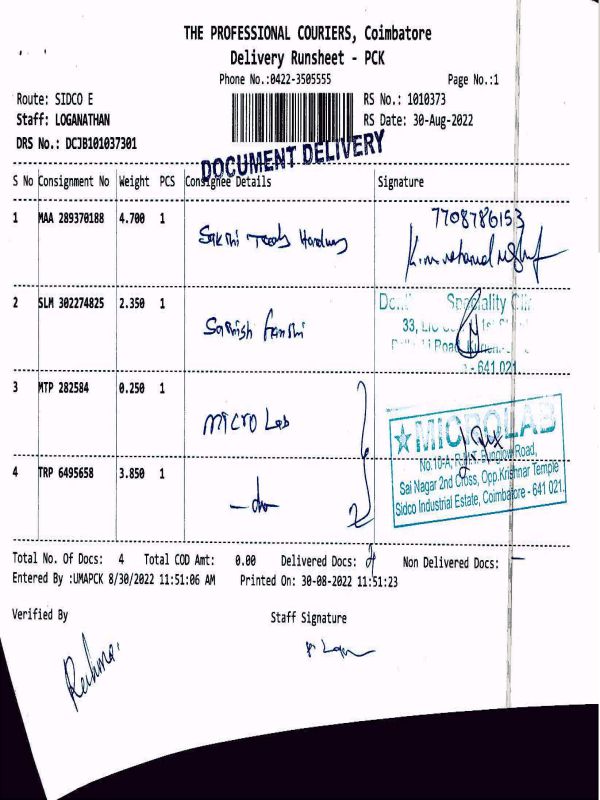 THE PROFESSIONAL COURIERS, Coimbatore
Delivery Runsheet - PCK
Phone No.:0422-3505555 Page No.:1
Route: SIDCO E RS No.: 1010373
Staff: LOGANATHAN RS Date: 30-Aug-2022
DRS No.: DCJB101037301
DOCUMENT DELIVERY
S No Consignment No Weight PCS Consignee Details Signature
1 MAA 289370188 4.700 1 Sakthi Tools Hardway 7708786153
2 SLM 302274825 2.350 1 Sathish
Speciality
33,
- 641 021
3 MTP 282584 0.250 1 Micro Lab
★MICROLAB
No.10-A, Bunglow Road,
Sai Nagar 2nd Cross, Opp.Krishnar Temple
Sidco Industrial Estate, Coimbatore - 641 021.
4 TRP 6495658 3.850 1 - do -
Total No. Of Docs: 4 Total COD Amt: 0.00 Delivered Docs: Non Delivered Docs: -
Entered By :UMAPCK 8/30/2022 11:51:06 AM Printed On: 30-08-2022 11:51:23
Verified By Staff Signature